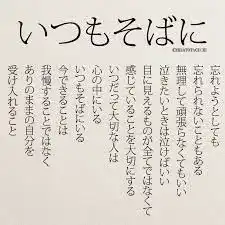 いつもそばに
忘れようとしても
忘れられないこともある
無理して頑張らなくてもいい
泣きたいときは泣けばいい
目に見えるものが全てではなくて
感じていることを大切にする
いつだって大切な人は
心の中にいる
いつもそばにいる
今できることは
我慢することではなく
ありのままの自分を
受け入れること